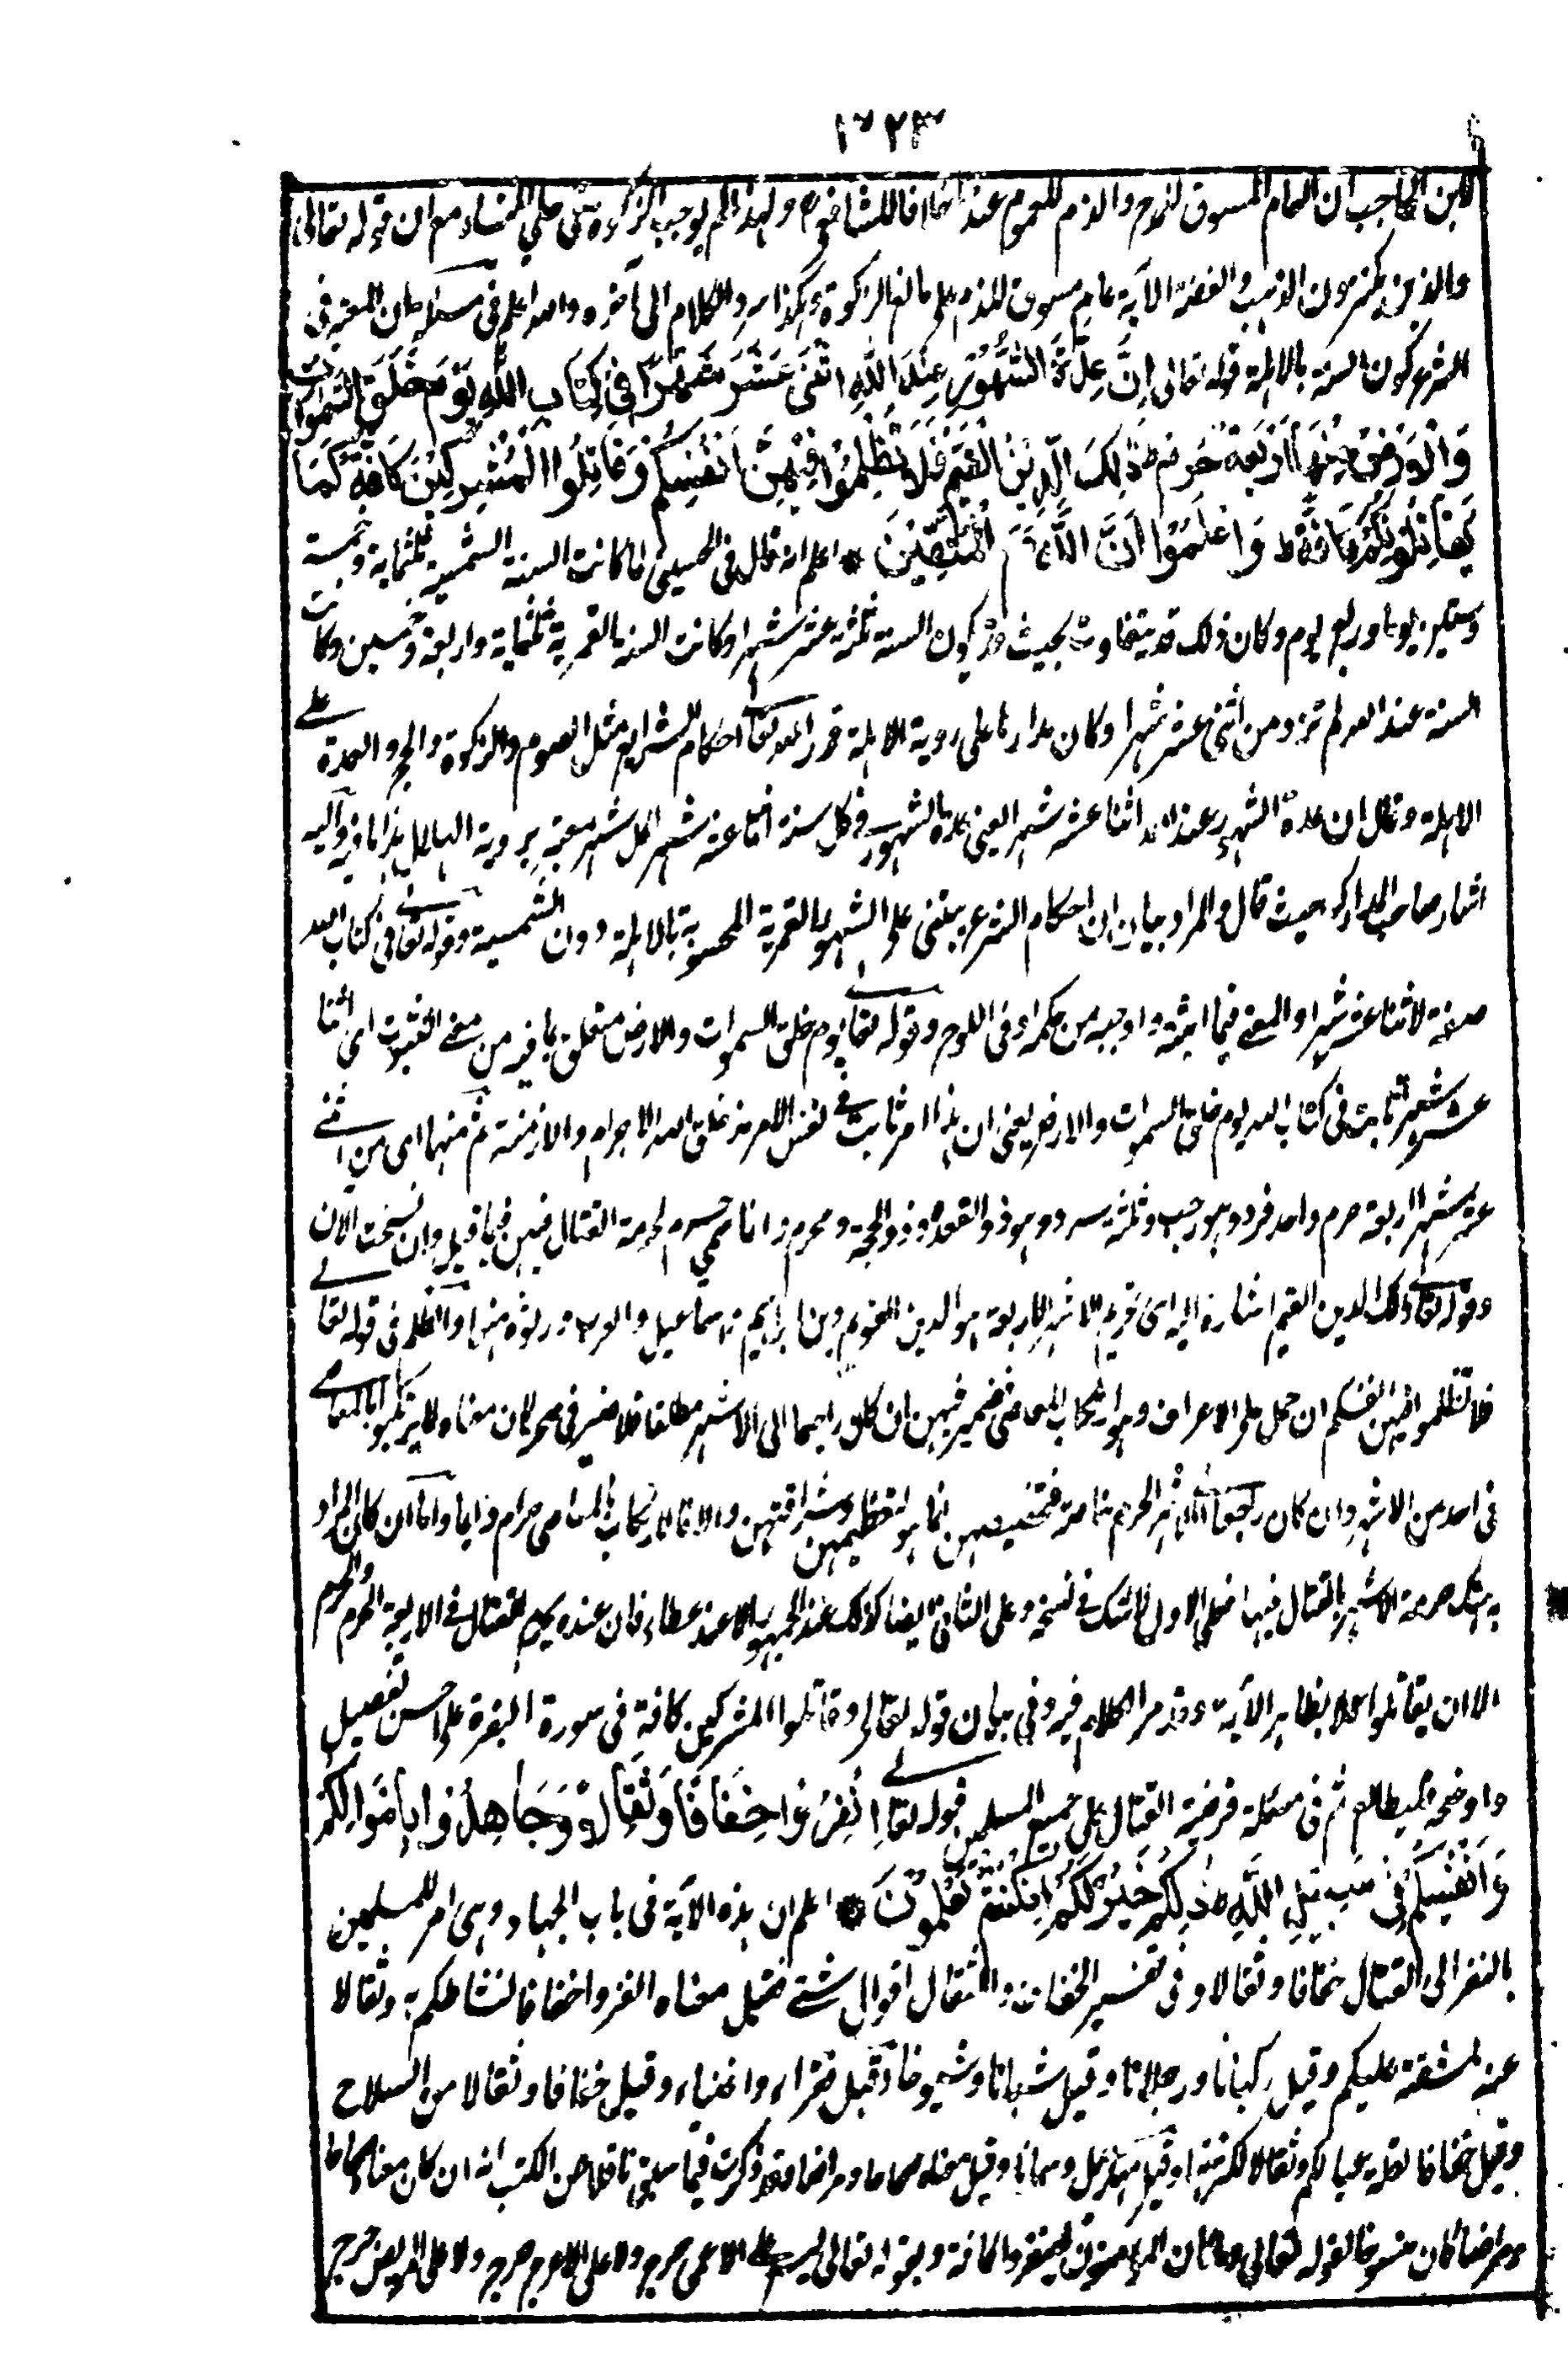 ٣٢٣
لابن الحاجب ان العام المسوق للمدح والذم للعموم عندنا خلافا للشافعي ولهذا لم يوجب الزكوة في حلي النساء مع ان قوله تعالى
والذين يكنزون الذهب والفضة الآية عام مسوق للذم على مانع الزكوة هكذا سرد الكلام الى آخره والله اعلم في مسئلة بيان المعتبر في
الشرع كون السنة بالاهلة قوله تعالى اِنَّ عِدَّةَ الشُّهُوْرِ عِنْدَ اللّٰهِ اثْنَی عَشَرَ شَهْرًا فِیْ كِتَابِ اللّٰهِ یَوْمَ خَلَقَ السَّمٰوَاتِ
وَالْاَرْضَ مِنْهَا اَرْبَعَةٌ حُرُمٌ ط ذٰلِكَ الدِّیْنُ الْقَیِّمُ فَلَا تَظْلِمُوْا فِیْهِنَّ اَنْفُسَكُمْ وَقَاتِلُوا الْمُشْرِكِیْنَ كَافَّةً كَمَا
یُقَاتِلُوْنَكُمْ كَافَّةً ط وَاعْلَمُوْا اَنَّ اللّٰهَ مَعَ الْمُتَّقِیْنَ * اعلم انه قال في الحسيني لما كانت السنة الشمسية ثلثماية وخمسة
وستين يوما وربع يوم وكان ذلك قد يتفاوت بحيث قد يكون السنة ثلثة عشر شهرا وكانت السنة القمرية ثلثماية واربعة وخمسين وكانت
السنة عند الله لم تزد من اثنى عشر شهرا وكان مدارها على روية الاهلة قرر الله تعالى احكام الشرايع مثل الصوم والزكوة والحج والعدة على
الاهلة وقال ان عدة الشهور عند الله اثنا عشر شهر ا يعنى عدة الشهور في كل سنة اثنا عشر شهر كل شهر معتبر بروية الهلال هذا ما فيه واليه
اشار صاحب المدارك حيث قال والمراد بيان ان احكام الشرع يبتنى على الشهور القمرية المحسوبة بالاهلة دون الشمسية وقوله تعالى في كتاب الله
صفة لاثنا عشر شهرا والمعنى فيما اثبته واوجبه من حكمه او في اللوح وقوله تعالى يوم خلق السموات والارض متعلق بما فيه من معنى الثبوت اى اثنا
عشر شهرا ثابت في كتاب الله يوم خلق السموات والارض يعنى ان هذا امر ثابت في نفس الامر مذ خلق الله الاجرام والازمنة ثم منها اى من اثنى
عشر شهرا اربعة حرم واحد فرد وهو رجب وثلثة سرد وهو ذو القعدة وذو الحجة ومحرم وانما سمى حرم لحرمة القتال فيهن فيما قبل وان نسخت الآن
وقوله تعالى ذلك الدين القيم اشارة اليه اى تحريم الاشهر الاربعة هو الدين القويم دين ابراهيم واسماعيل والعرب ورثوه منهما والظلم في قوله تعالى
فلا تظلموا فيهن انفسكم ان حمل على الاعراف وهو ارتكاب المعاصى فضمير فيهن ان كان راجعا الى الاشهر مطلقا فلا ضير في هو كان معناه لا يرتكبوا بالمعاصى
في احد من الاشهر وان كان راجعا الى الاشهر الحرم خاصة فتخصيصهن انما هو لتعظيمهن وشرافتهن والا فارتكاب المعاصى حرام دايما واما ان كان المراد
به هتك حرمة الاشهر بالقتال فيها فعلى الاول لا شك في نسخه وعلى الثاني ايضا كذلك عند الجمهور الا عند عطاء فان عنده يحرم القتال في الاربعة الحرم والحرم
الا ان يقاتلوا عملا بظاهر الآية وقد مر الكلام فيه وفي بيان قوله تعالى وقاتلوا المشركين كافة في سورة البقرة على احسن تفصيل
واوضحه فليطالع ثم في مسئلة فرضية القتال على جميع المسلمين قوله تعالى اِنْفِرُوْا خِفَافًا وَّثِقَالًا وَّجَاهِدُوْا بِاَمْوَالِكُمْ
وَاَنْفُسِكُمْ فِیْ سَبِیْلِ اللّٰهِ ط ذٰلِكُمْ خَیْرٌ لَّكُمْ اِنْ كُنْتُمْ تَعْلَمُوْنَ * اعلم ان هذه الآية في باب الجهاد وهي امر للمسلمين
بالنفر الى القتال خفافا وثقالا وفي تفسير الخفاف والثقال اقوال شتى فقيل معناه انفروا خفافا لنشاطكم به وثقالا
عنه لمشقته عليكم وقيل ركبانا ورجالا وقيل شبانا وشيوخا وقيل فقراء واغنياء وقيل خفافا وثقالا من السلاح
وقيل خفافا لقلة عيالكم وثقالا لكثرتها وقيل مهازيل وسمانا وقيل معناه صحاحا ومراضا وقد ذكرت فيما سبق ناقلا عن الكتب انه ان كان معناه صحاحا
ومراضا كان منسوخا لقوله تعالى وما كان المؤمنون لينفروا كافة وبقوله تعالى ليس على الاعمى حرج ولا على الاعرج حرج ولا على المريض حرج